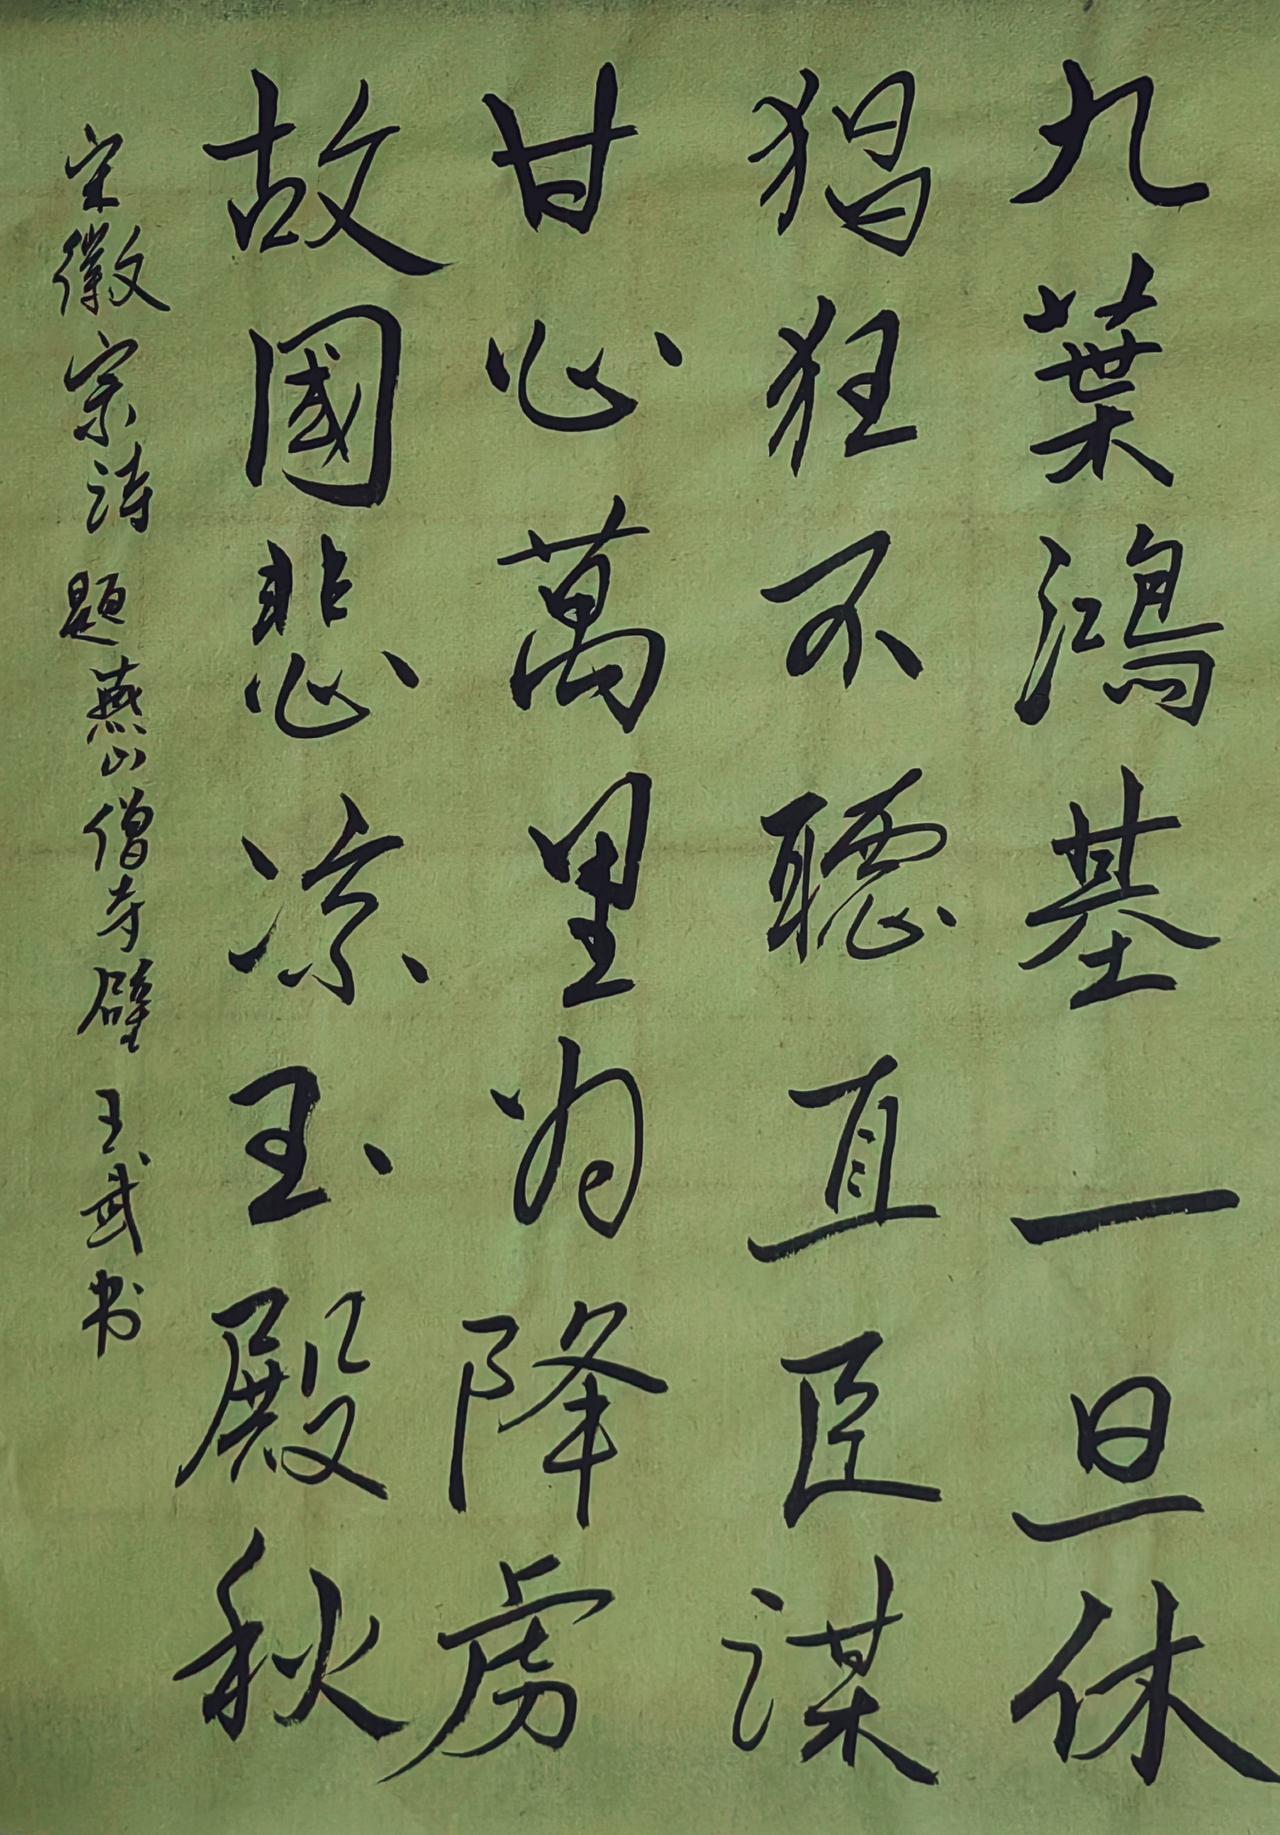 九葉鴻基一旦休
猖狂不聽直臣謀
甘心萬里为降虏
故國悲凉玉殿秋
宋徽宗诗 题燕山僧寺壁 王武书